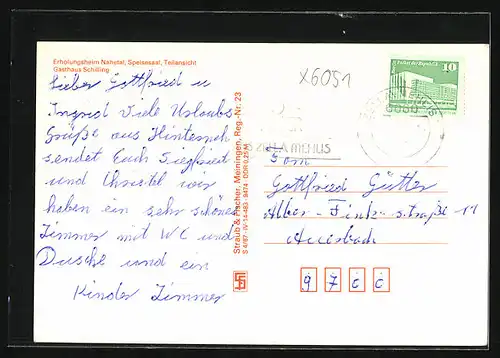 Erholungsheim Nahetal, Speisesaal, Teilansicht
Gasthaus Schilling
Lieber Gottfried u
Ingrid Viele Urlaubs
Grüße aus Hinternah
sendet Euch Siegfried
und Christel wir
haben ein sehr schönes
Zimmer mit WC und
Dusche und ein
Kinder Zimmer
Straub & Fischer, Meiningen, Reg.-Nr. 23
S 4/87 · IV-14-483 · 9474 · DDR 0,25 M
X6051
Palast der Republik
10
Fam
Gottfried Götter
Albin-Fink-straße 11
Auerbach
9 7 0 0